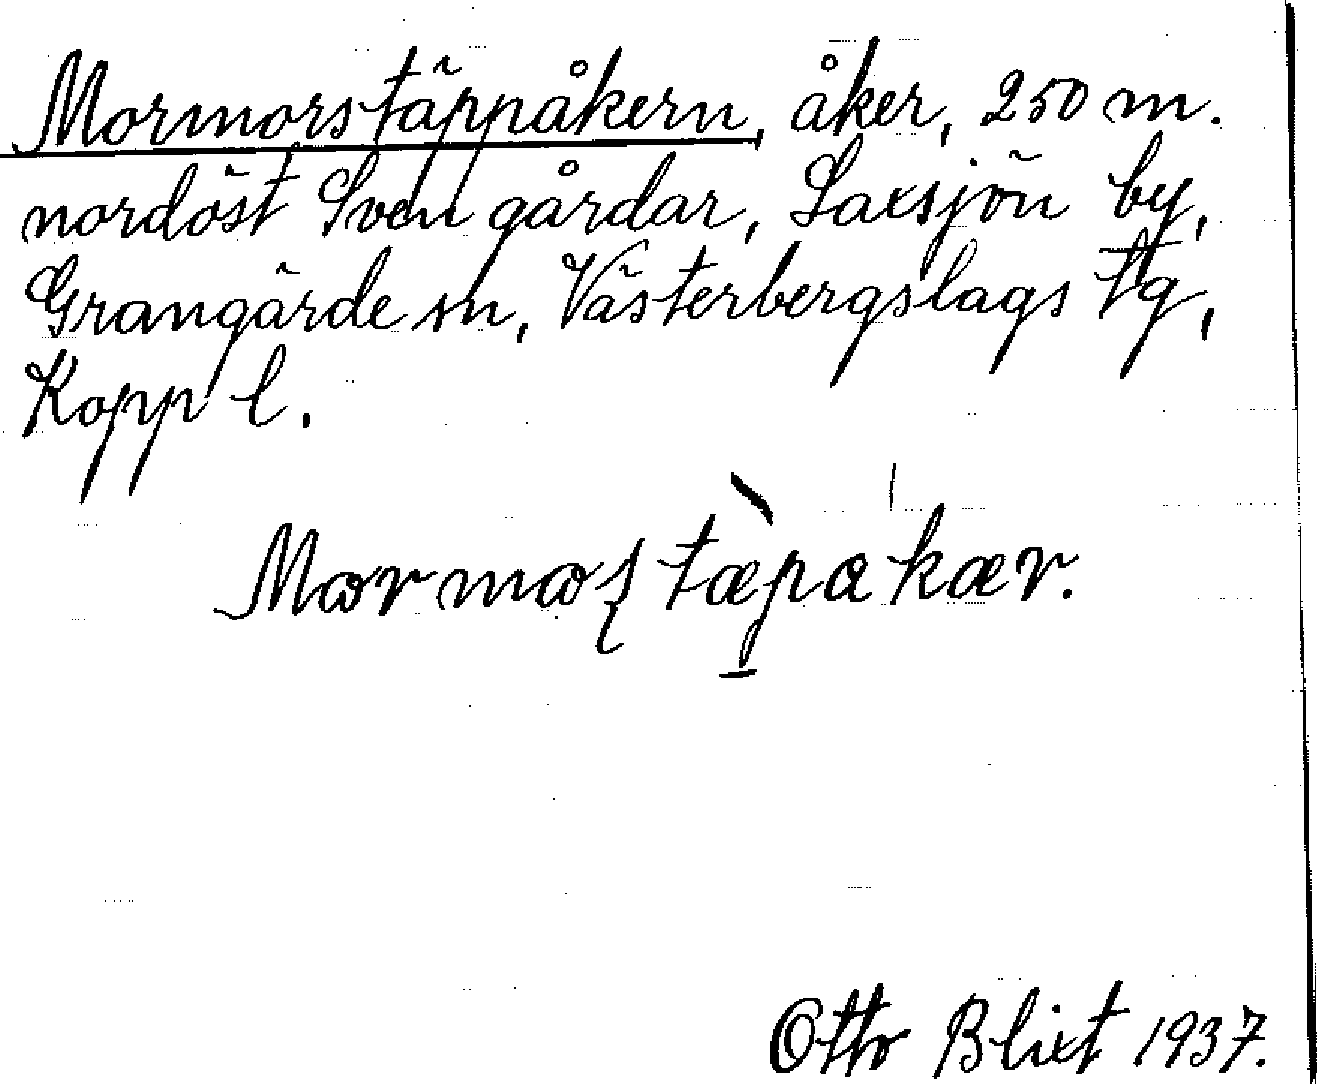 Mormorstäppåkern, åker, 250 m.
nordöst Sven gårdar, Saxsjön by,
Grangärde sn, Västerbergslags tg,
Kopp l.
Mormos̨ tæ̀pakær.
Otto Blixt 1937.